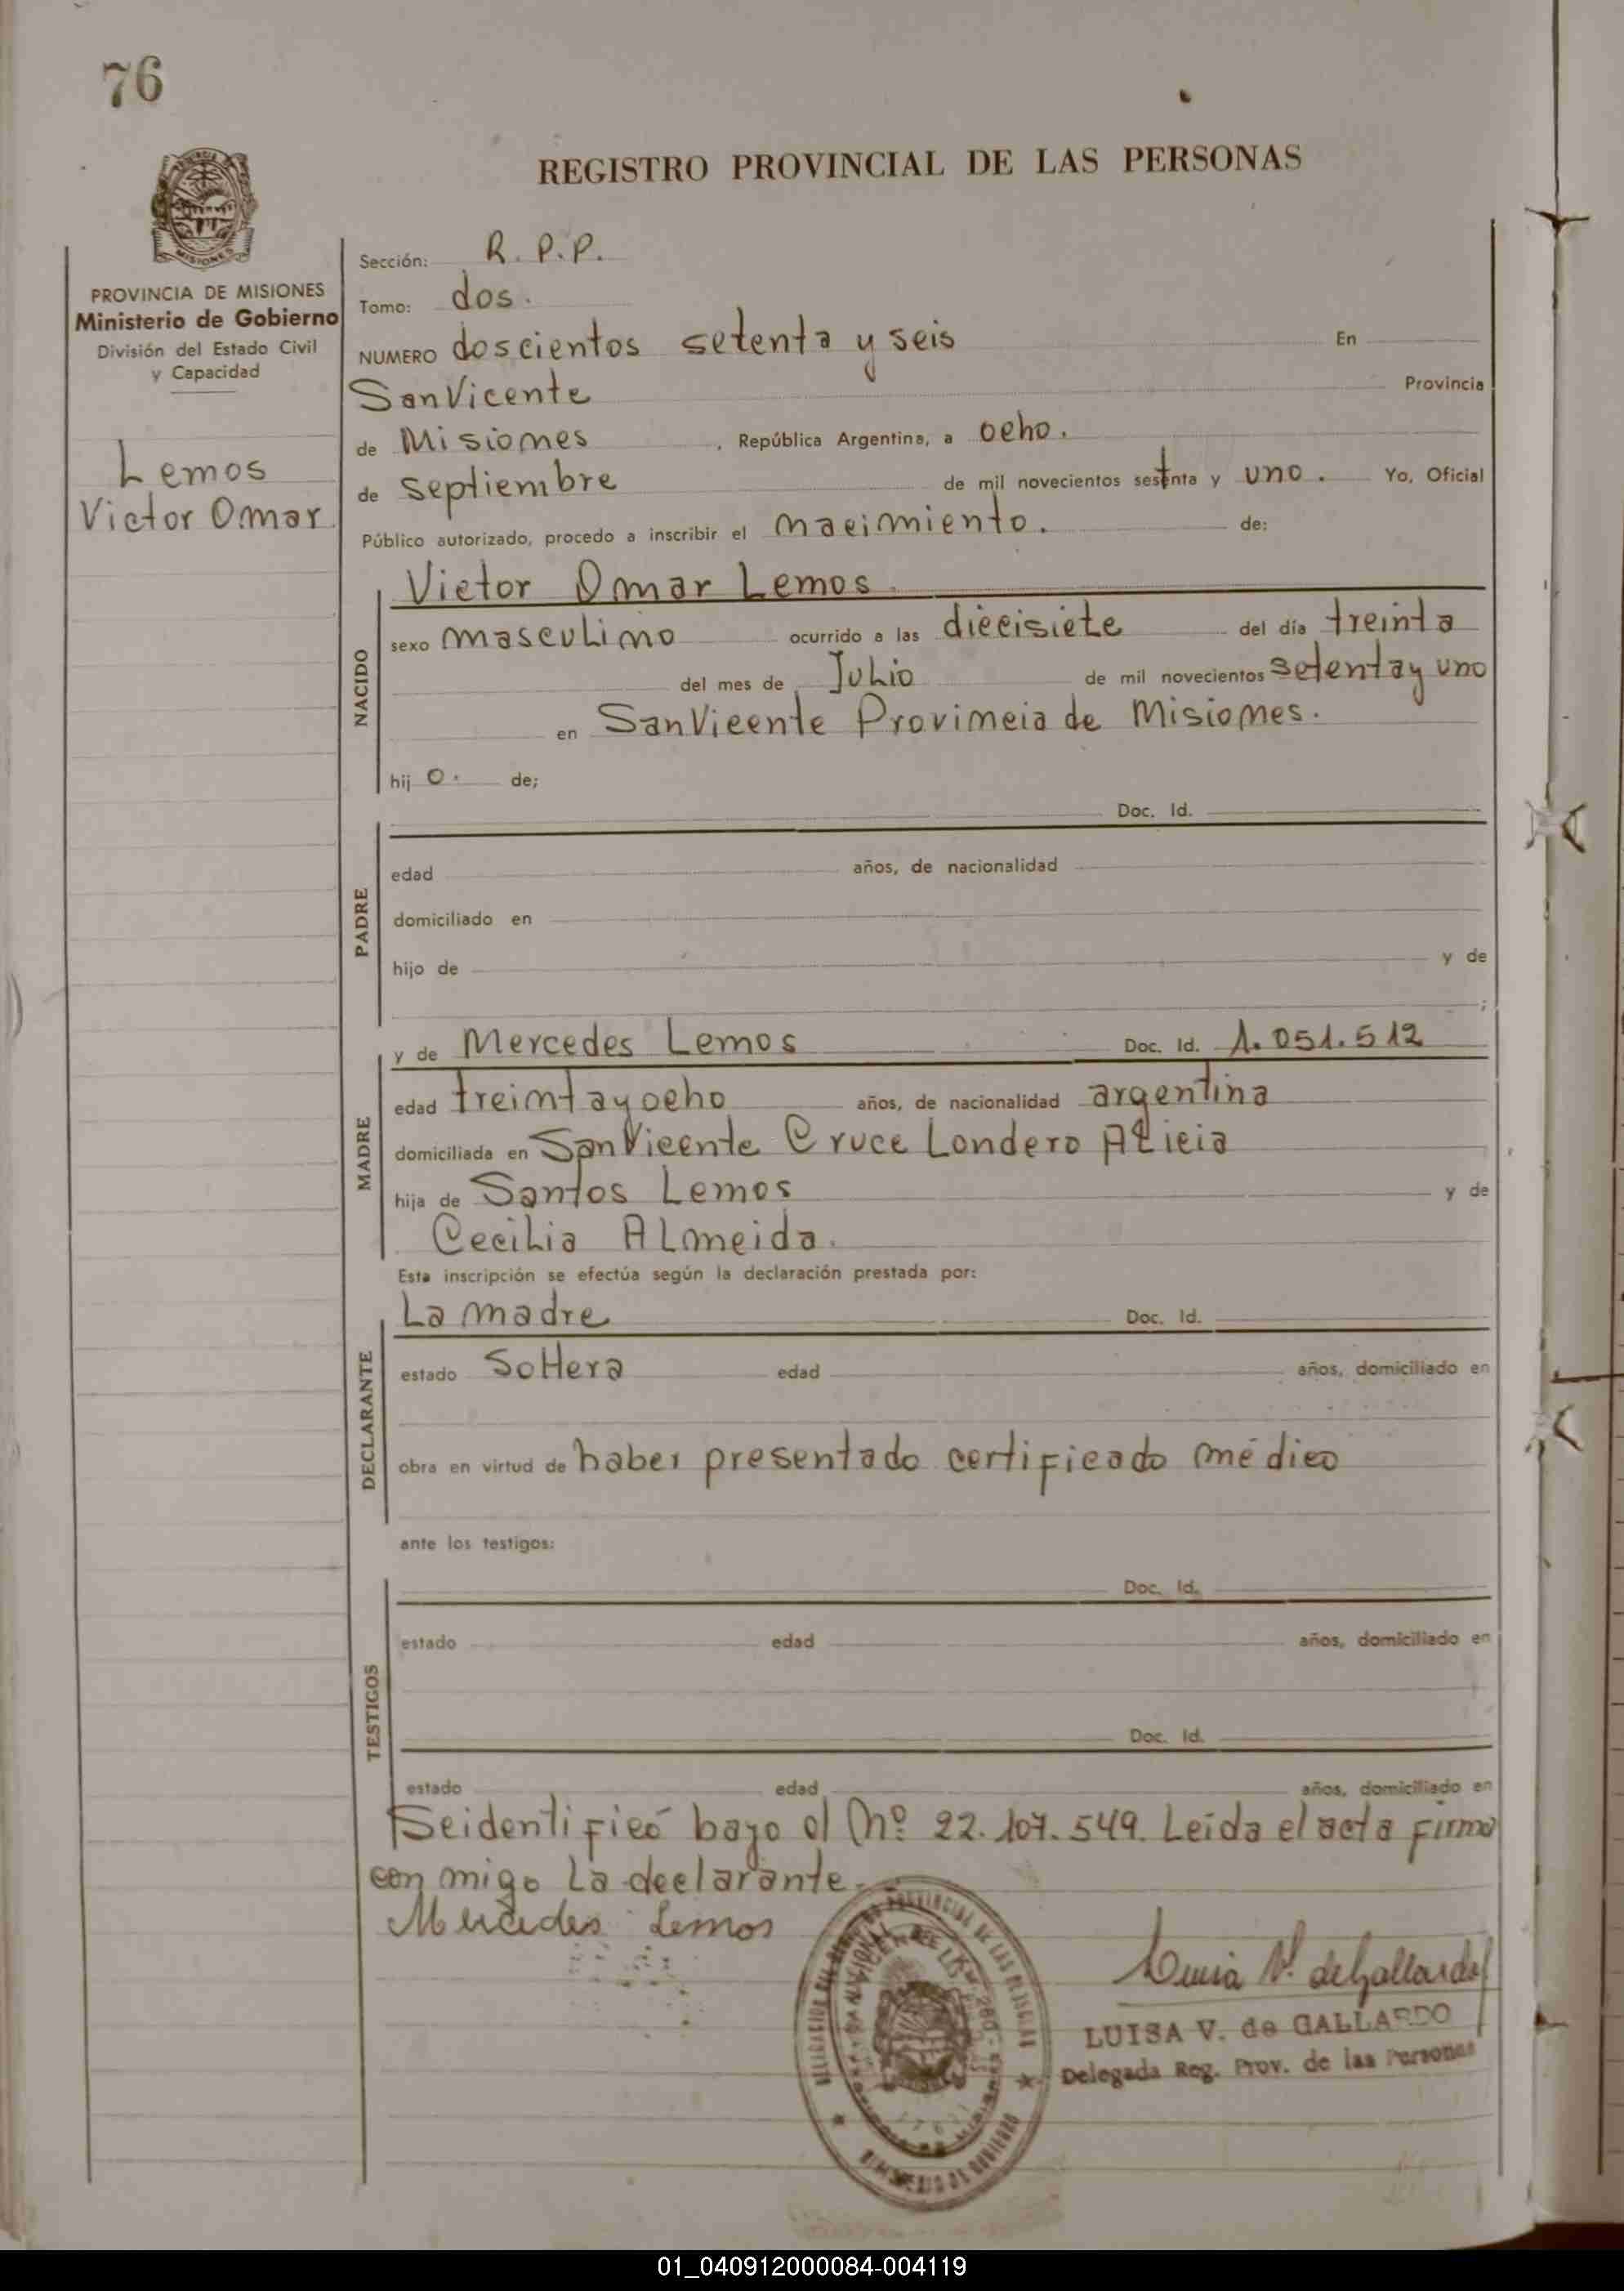 76
REGISTRO PROVINCIAL DE LAS PERSONAS
MISIONES
PROVINCIA DE MISIONES
Ministerio de Gobierno
División del Estado Civil
y Capacidad
Lemos
Victor Omar
Sección: R. P. P.
Tomo: dos.
NUMERO doscientos setenta y seis En
San Vicente Provincia
de Misiones , República Argentina, a ocho.
de septiembre de mil novecientos setenta y uno. Yo, Oficial
Público autorizado, procedo a inscribir el nacimiento. de:
NACIDO
Victor Omar Lemos
sexo masculino ocurrido a las diecisiete del día treinta
del mes de Julio de mil novecientos setenta y uno
en San Vicente Provincia de Misiones.
hij o. de;
PADRE
Doc. Id.
edad años, de nacionalidad
domiciliado en
hijo de y de
;
MADRE
y de Mercedes Lemos Doc. Id. 1.051.512
edad treinta y ocho años, de nacionalidad argentina
domiciliada en San Vicente Cruce Londero Alicia
hija de Santos Lemos y de
Cecilia Almeida.
Esta inscripción se efectúa según la declaración prestada por:
DECLARANTE
La madre Doc. Id.
estado Soltera edad años, domiciliado en
obra en virtud de haber presentado certificado médico
ante los testigos:
TESTIGOS
Doc. Id.
estado edad años, domiciliado en
Doc. Id.
estado edad años, domiciliado en
Se identificó bajo el Nº 22.107.549. Leída el acta firma
con migo La declarante.
Mercedes Lemos
PROVINCIAL DE LAS PERSONAS
MINISTERIO DE GOBIERNO
Luisa V. de Gallardo
LUISA V. de GALLARDO
Delegada Reg. Prov. de las Personas
01_040912000084-004119